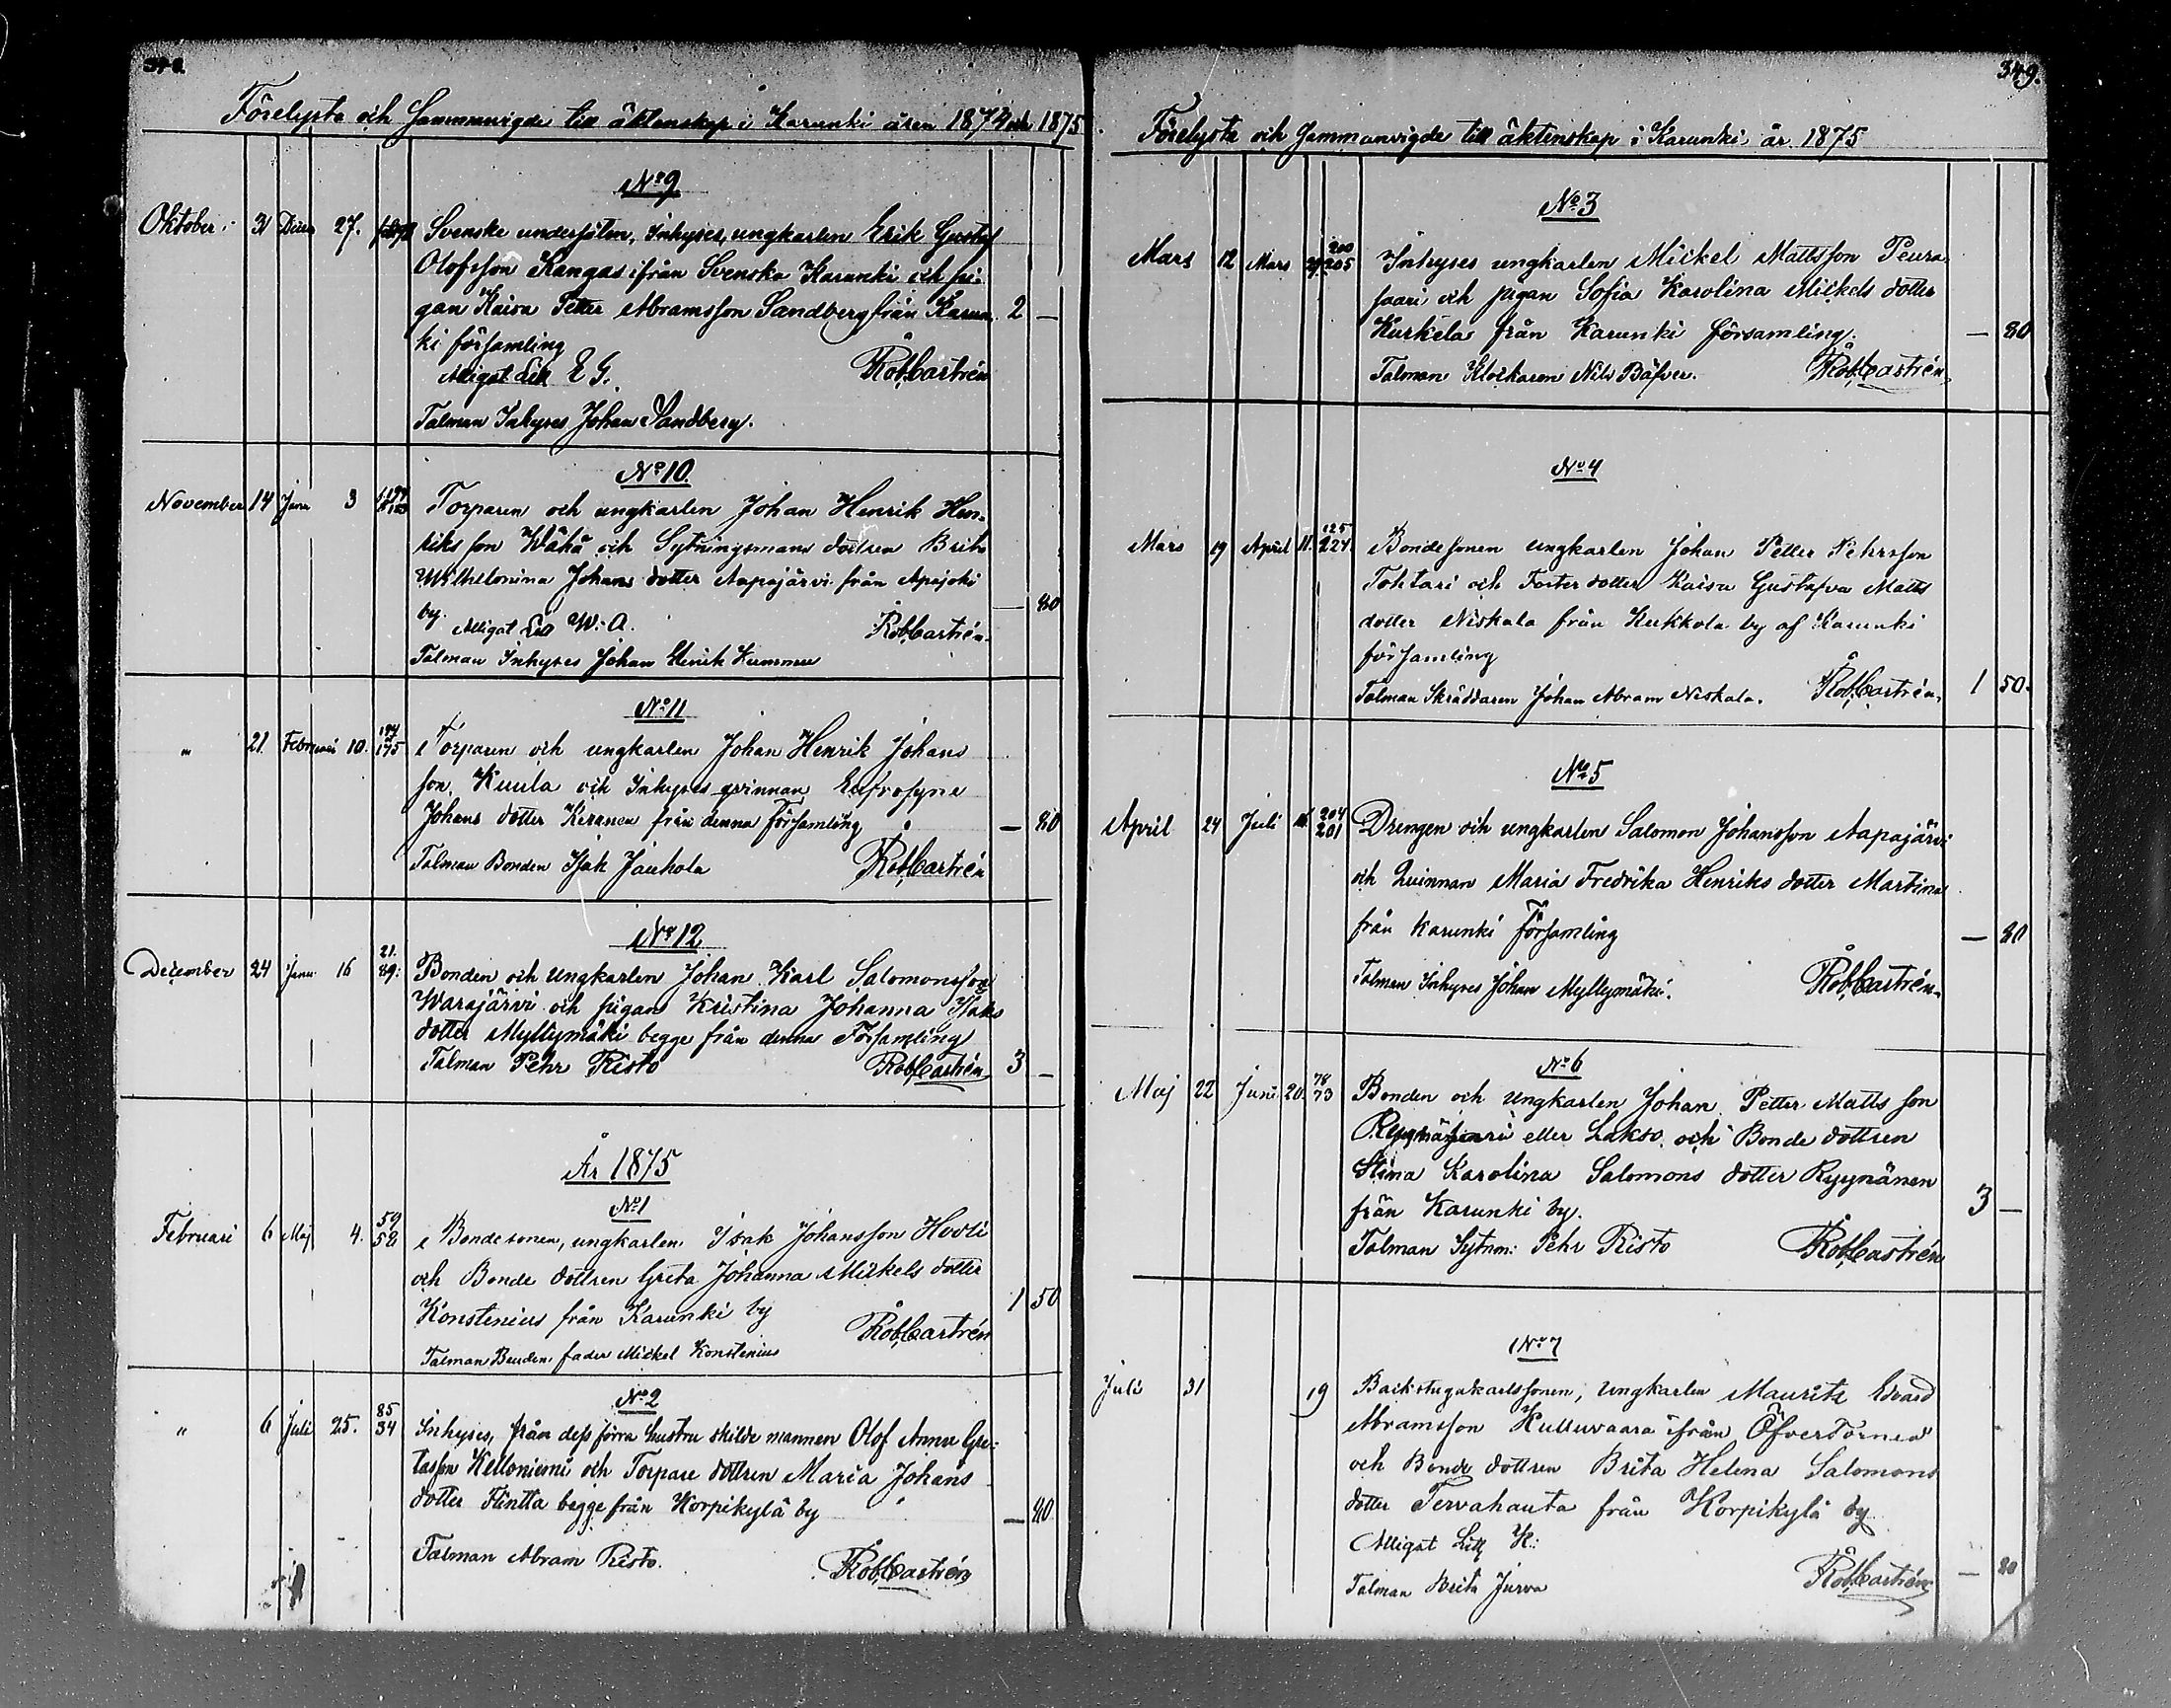 Förelysta och Sammanvigde till äktenskap i Karunki åren 1874 och 1875
No 9
Oktober 31 Decem 27. Svenske undersåten, Inhyses, ungkarlen Erik Gustaf
Olofsson Kangas ifrån Svenska Karunki och pi-
gan Kaisa Petter Abramsson Sandberg från Karun- 2 —
ki församling
Alligat Litt E G. RobCastrén
Talman Inhyses Johan Sandberg.
No 10.
November 14 Janu 3 Torparen och ungkarlen Johan Henrik Hen-
riksson Wähä och Sytningsmans dottren Brita
Wilhelmina Johans dotter Aapajärvi från Apajoki
by. — 80
Alligat Litt W: A. RobCastrén.
Talman Inhyses Johan Henrik Kummu
No 11
" 21. Februari 10. 194 175 Torparen och ungkarlen Johan Henrik Johans
son Kuula och Inhyses qvinnan Eufrosyne
Johans dotter Keranen från denna Församling — 80
Talman Bonden Isak Jaukola RobCastrén
No 12
December 24 Janu 16 21. 89: Bonden och Ungkarlen Johan Karl Salomonsson
Warajärvi och pigan Kristina Johanna Isaks
dotter Myllymäki begge från denna Församling
Talman Pehr Risto RobCastrén 3 —
År 1875
No 1
Februari 6 Maj 4. 59 58 Bondesonen, ungkarlen Isak Johansson Hooli
och Bonde dottren Greta Johanna Mickels dotter
Konstenius från Karunki by 1 50
RobCastrén
Talman Brudens fader Mickel Konstenius
No 2
" 6 Juli 25. 85 34 Inhyses, från dess förra hustru skilde mannen Olof Anna Gre-
tasson Kelloniemi och Torpare dottren Maria Johans
dotter Flintta begge från Korpikylä by — 80
Talman Abram Risto. RobCastrén
349.
Förelysta och Sammanvigde till äktenskap i Karunki år 1875
No 3
Mars 12 Mars 29. 200 205 Inhyses ungkarlen Mickel Mattsson Peura
saari och pigan Sofia Karolina Mickels dotter
Kurkela från Karunki församling. — 80
Talman Klockaren Nils Bäfver. RobCastrén
No 4
Mars 19 April 11. 125 224 Bondesonen ungkarlen Johan Petter Pehrsson
Tohtari och Foster dotter Kaisa Gustafva Matts
dotter Niskala från Kukkola by af Karunki
församling
Talman Skräddaren Johan Abram Niskala. RobCastrén. 1 50.
No 5
April 24 Juli 204 201 Drengen och ungkarlen Salomon Johansson Aapajärvi
och Qvinnan Maria Fredrika Henriks dotter Martina
från Karunki Församling — 80
Talman Inhyses Johan Myllymäki. RobCastrén.
No 6
Maj 22 Juni 20. 78 73 Bonden och Ungkarlen Johan Petter Matts son
eller Lakso och Bonde dottren
Stina Karolina Salomons dotter Ryynänen
från Karunki by. 3 —
Talman Sytnm: Pehr Risto RobCastrén
No 7
Juli 31 19 Backstugukarlssonen, Ungkarlen Maurits Edvard
Abramsson Kulluvaara ifrån ÖfverTorneå
och Bonde dottren Brita Helena Salomons
dotter Tervahauta från Korpikylä by
Alligat Litt H:
Talman Brita Jurva RobCastrén — 80